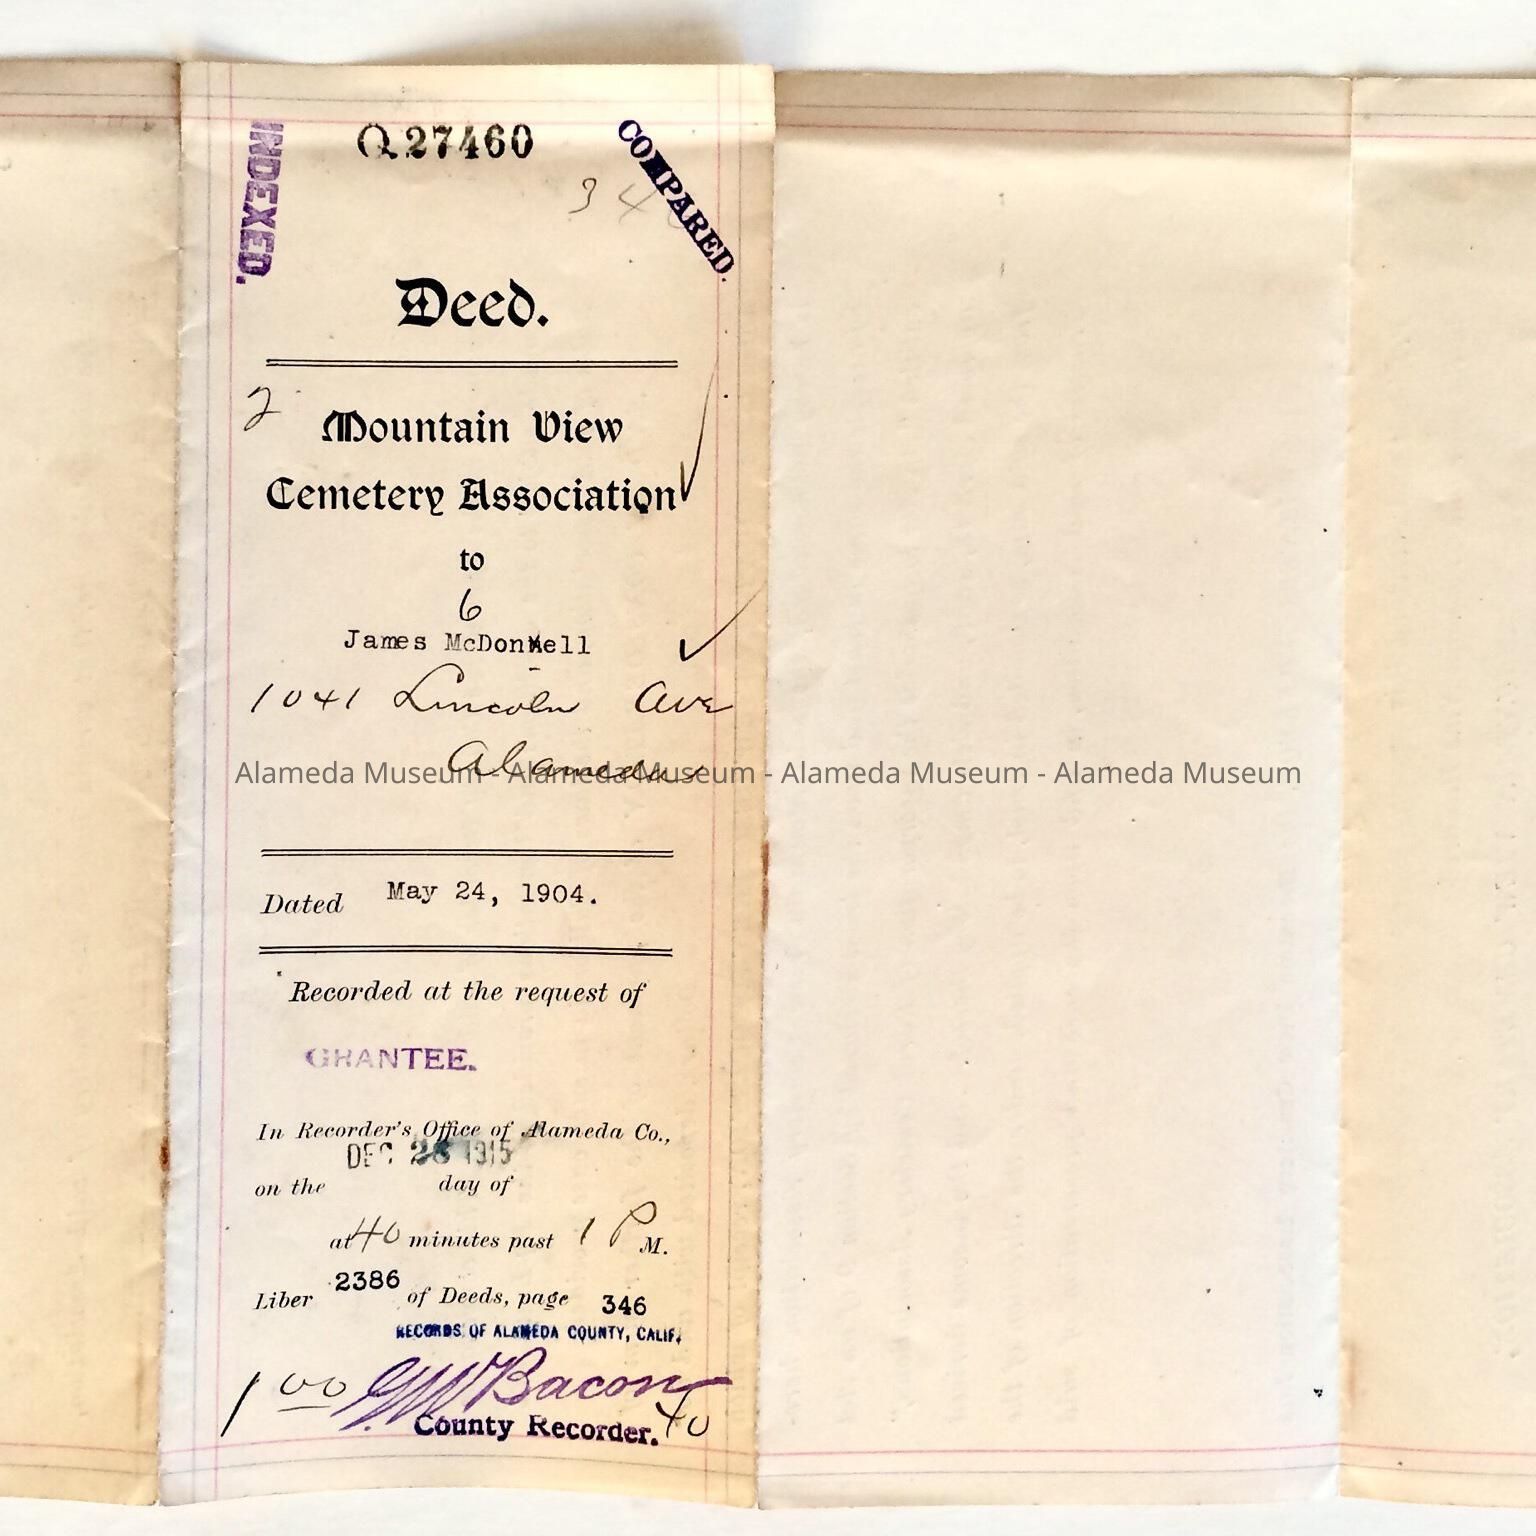 INDEXED.
Q 27460
COMPARED.
34
Deed.
2
Mountain View
Cemetery Association
to
6
James McDonnell
1041 Lincoln Ave
Alameda
Alameda Museum - Alameda Museum - Alameda Museum - Alameda Museum
Dated May 24, 1904.
Recorded at the request of
GRANTEE.
In Recorder's Office of Alameda Co.,
DEC 28 1915
on the day of
at 40 minutes past 1 P M.
Liber 2386 of Deeds, page 346
RECORDS OF ALAMEDA COUNTY, CALIF.
1 00 G W Bacon
County Recorder. 40